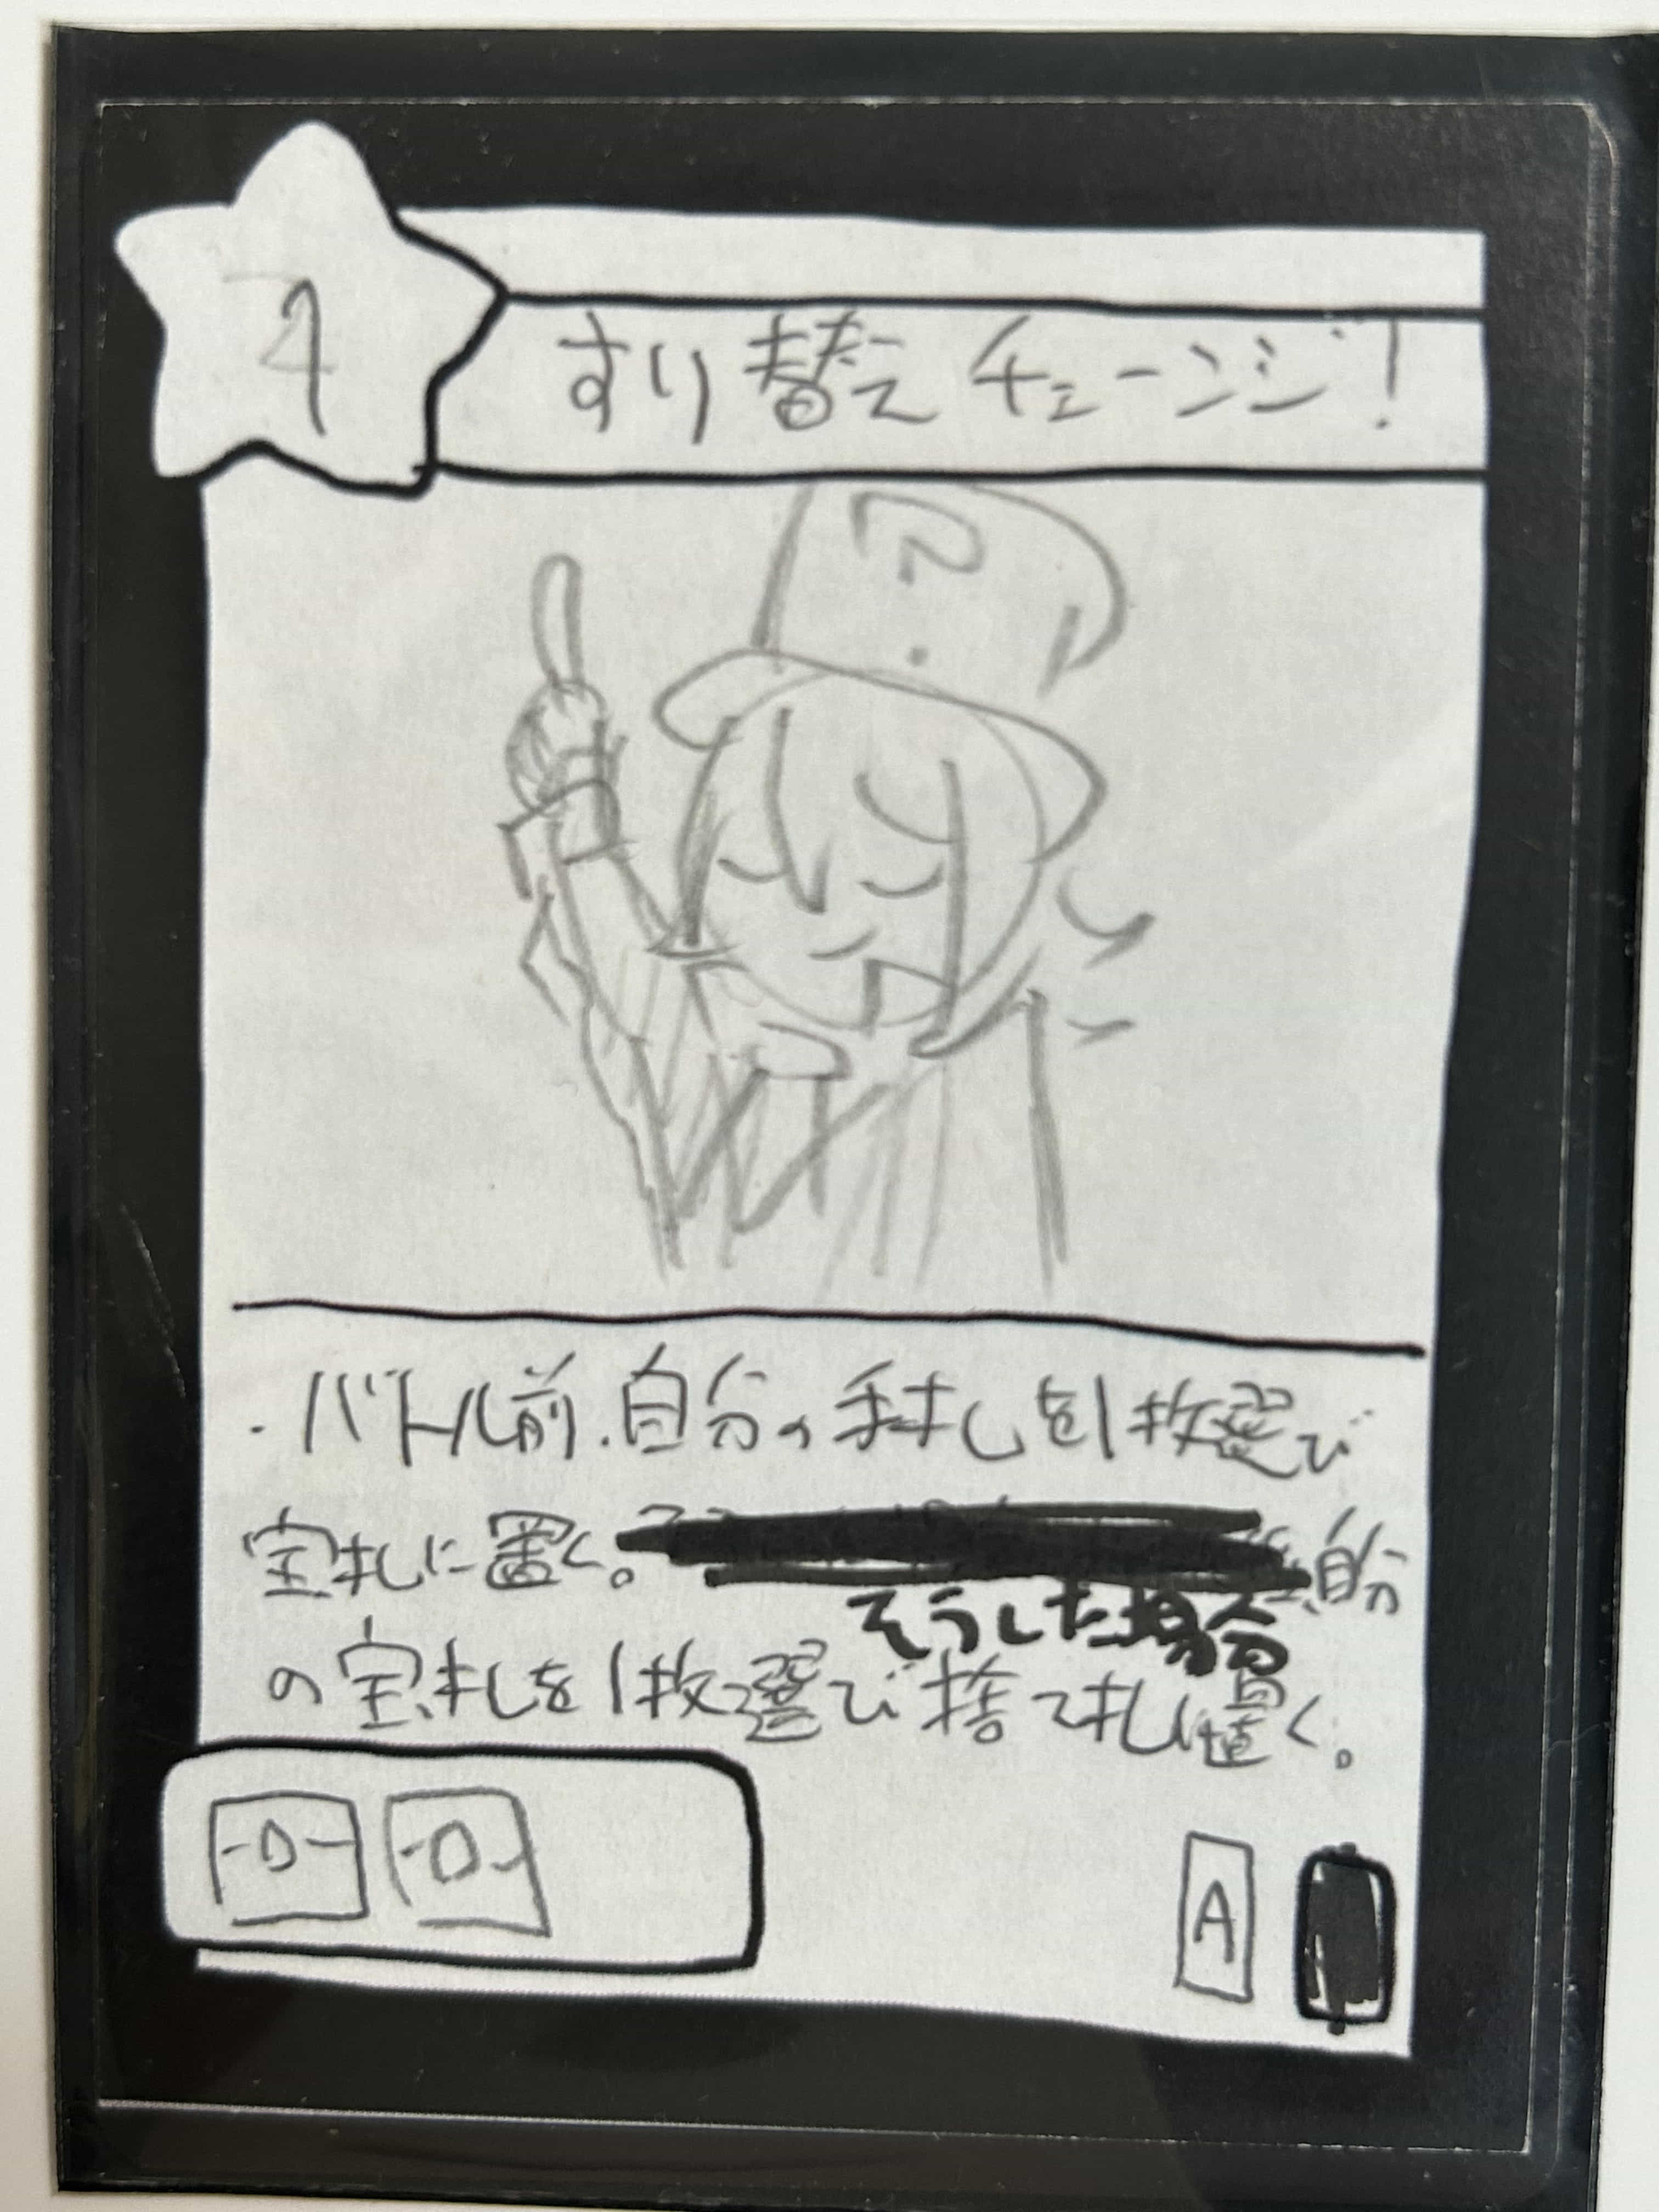 すり替えチェーンジ!
?
・バトル前、自分の手札を1枚選び
宝札に置く。自分
そうした場合
の宝札を1枚選び捨て札に置く。
D D
A